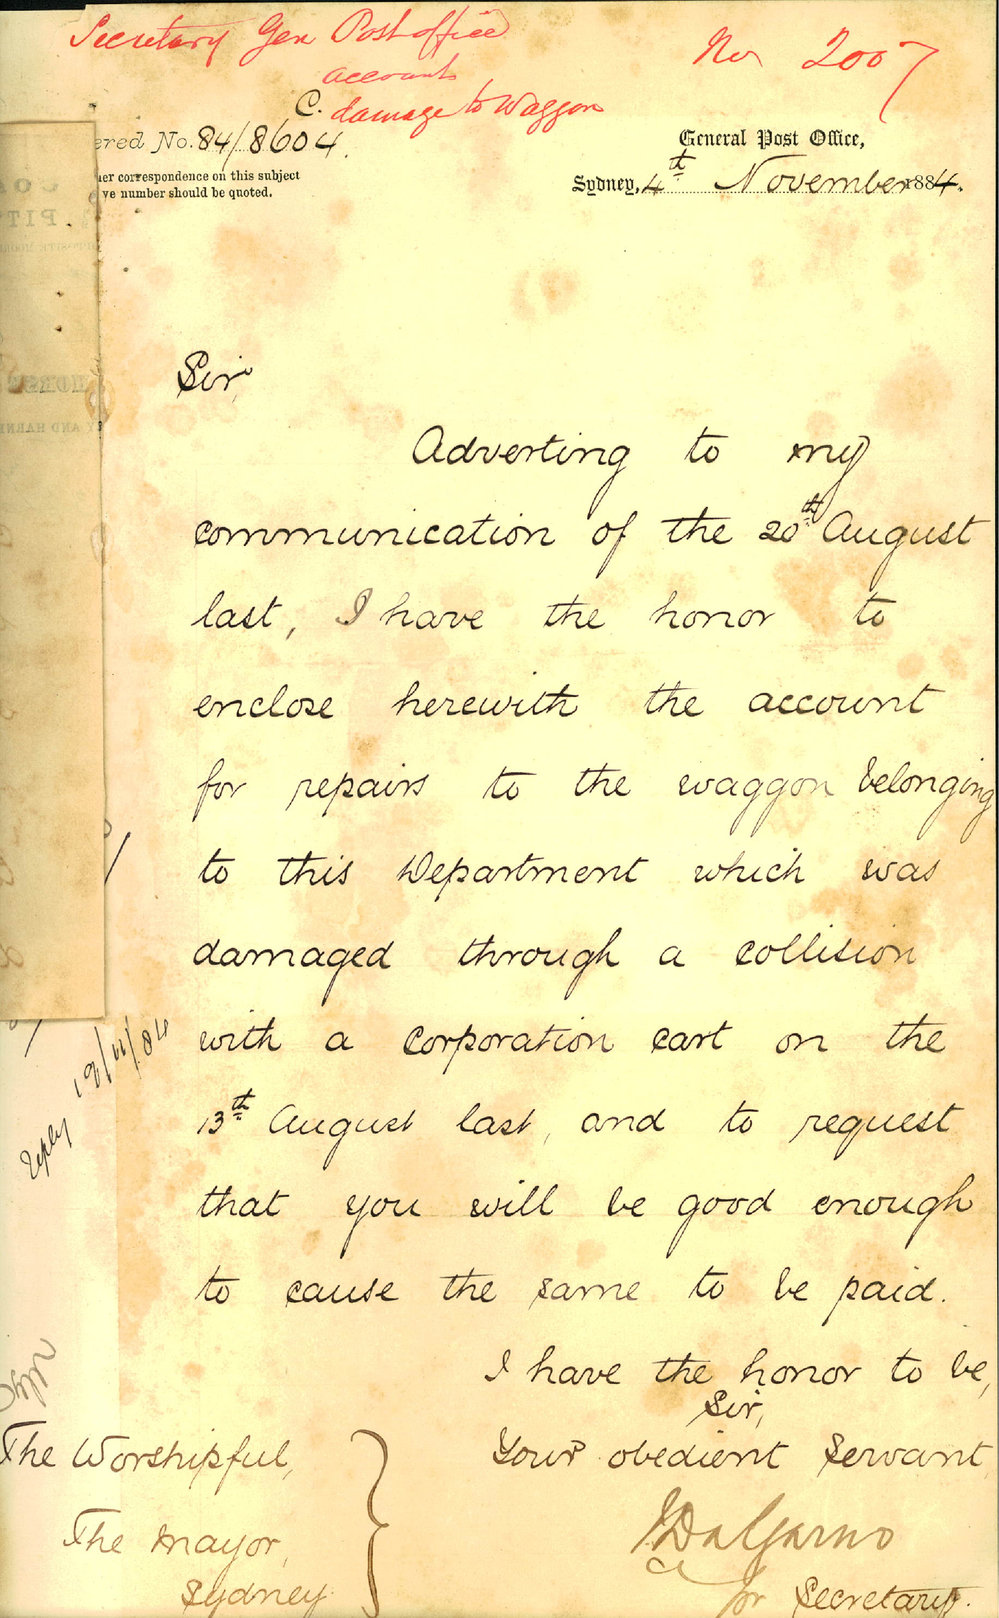 Secretary Gen Post office
No 2007
account
C. damage to Waggon
ered No. 84/8604.
General Post Office,
er correspondence on this subject
ve number should be quoted.
Sydney, 4th November 1884.
Sir,
Adverting to my
communication of the 20th August
last, I have the honor to
enclose herewith the account
for repairs to the waggon belonging
to this Department which was
damaged through a collision
with a corporation cart on the
13th August last, and to request
that you will be good enough
to cause the same to be paid.
I have the honor to be,
Sir,
Your obedient Servant
The Worshipful,
The Mayor,
Sydney
J Dalgarno
for Secretary.
reply 19/11/84